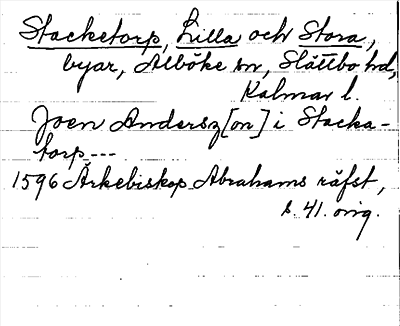 Stacketorp, Lilla och Stora,
byar, Alböke sn, Slättbo hd,
Kalmar l.
Joen Andersz[on] i Stacka-
torp---
1596 Ärkebiskop Abrahams räfst,
s. 41. orig.